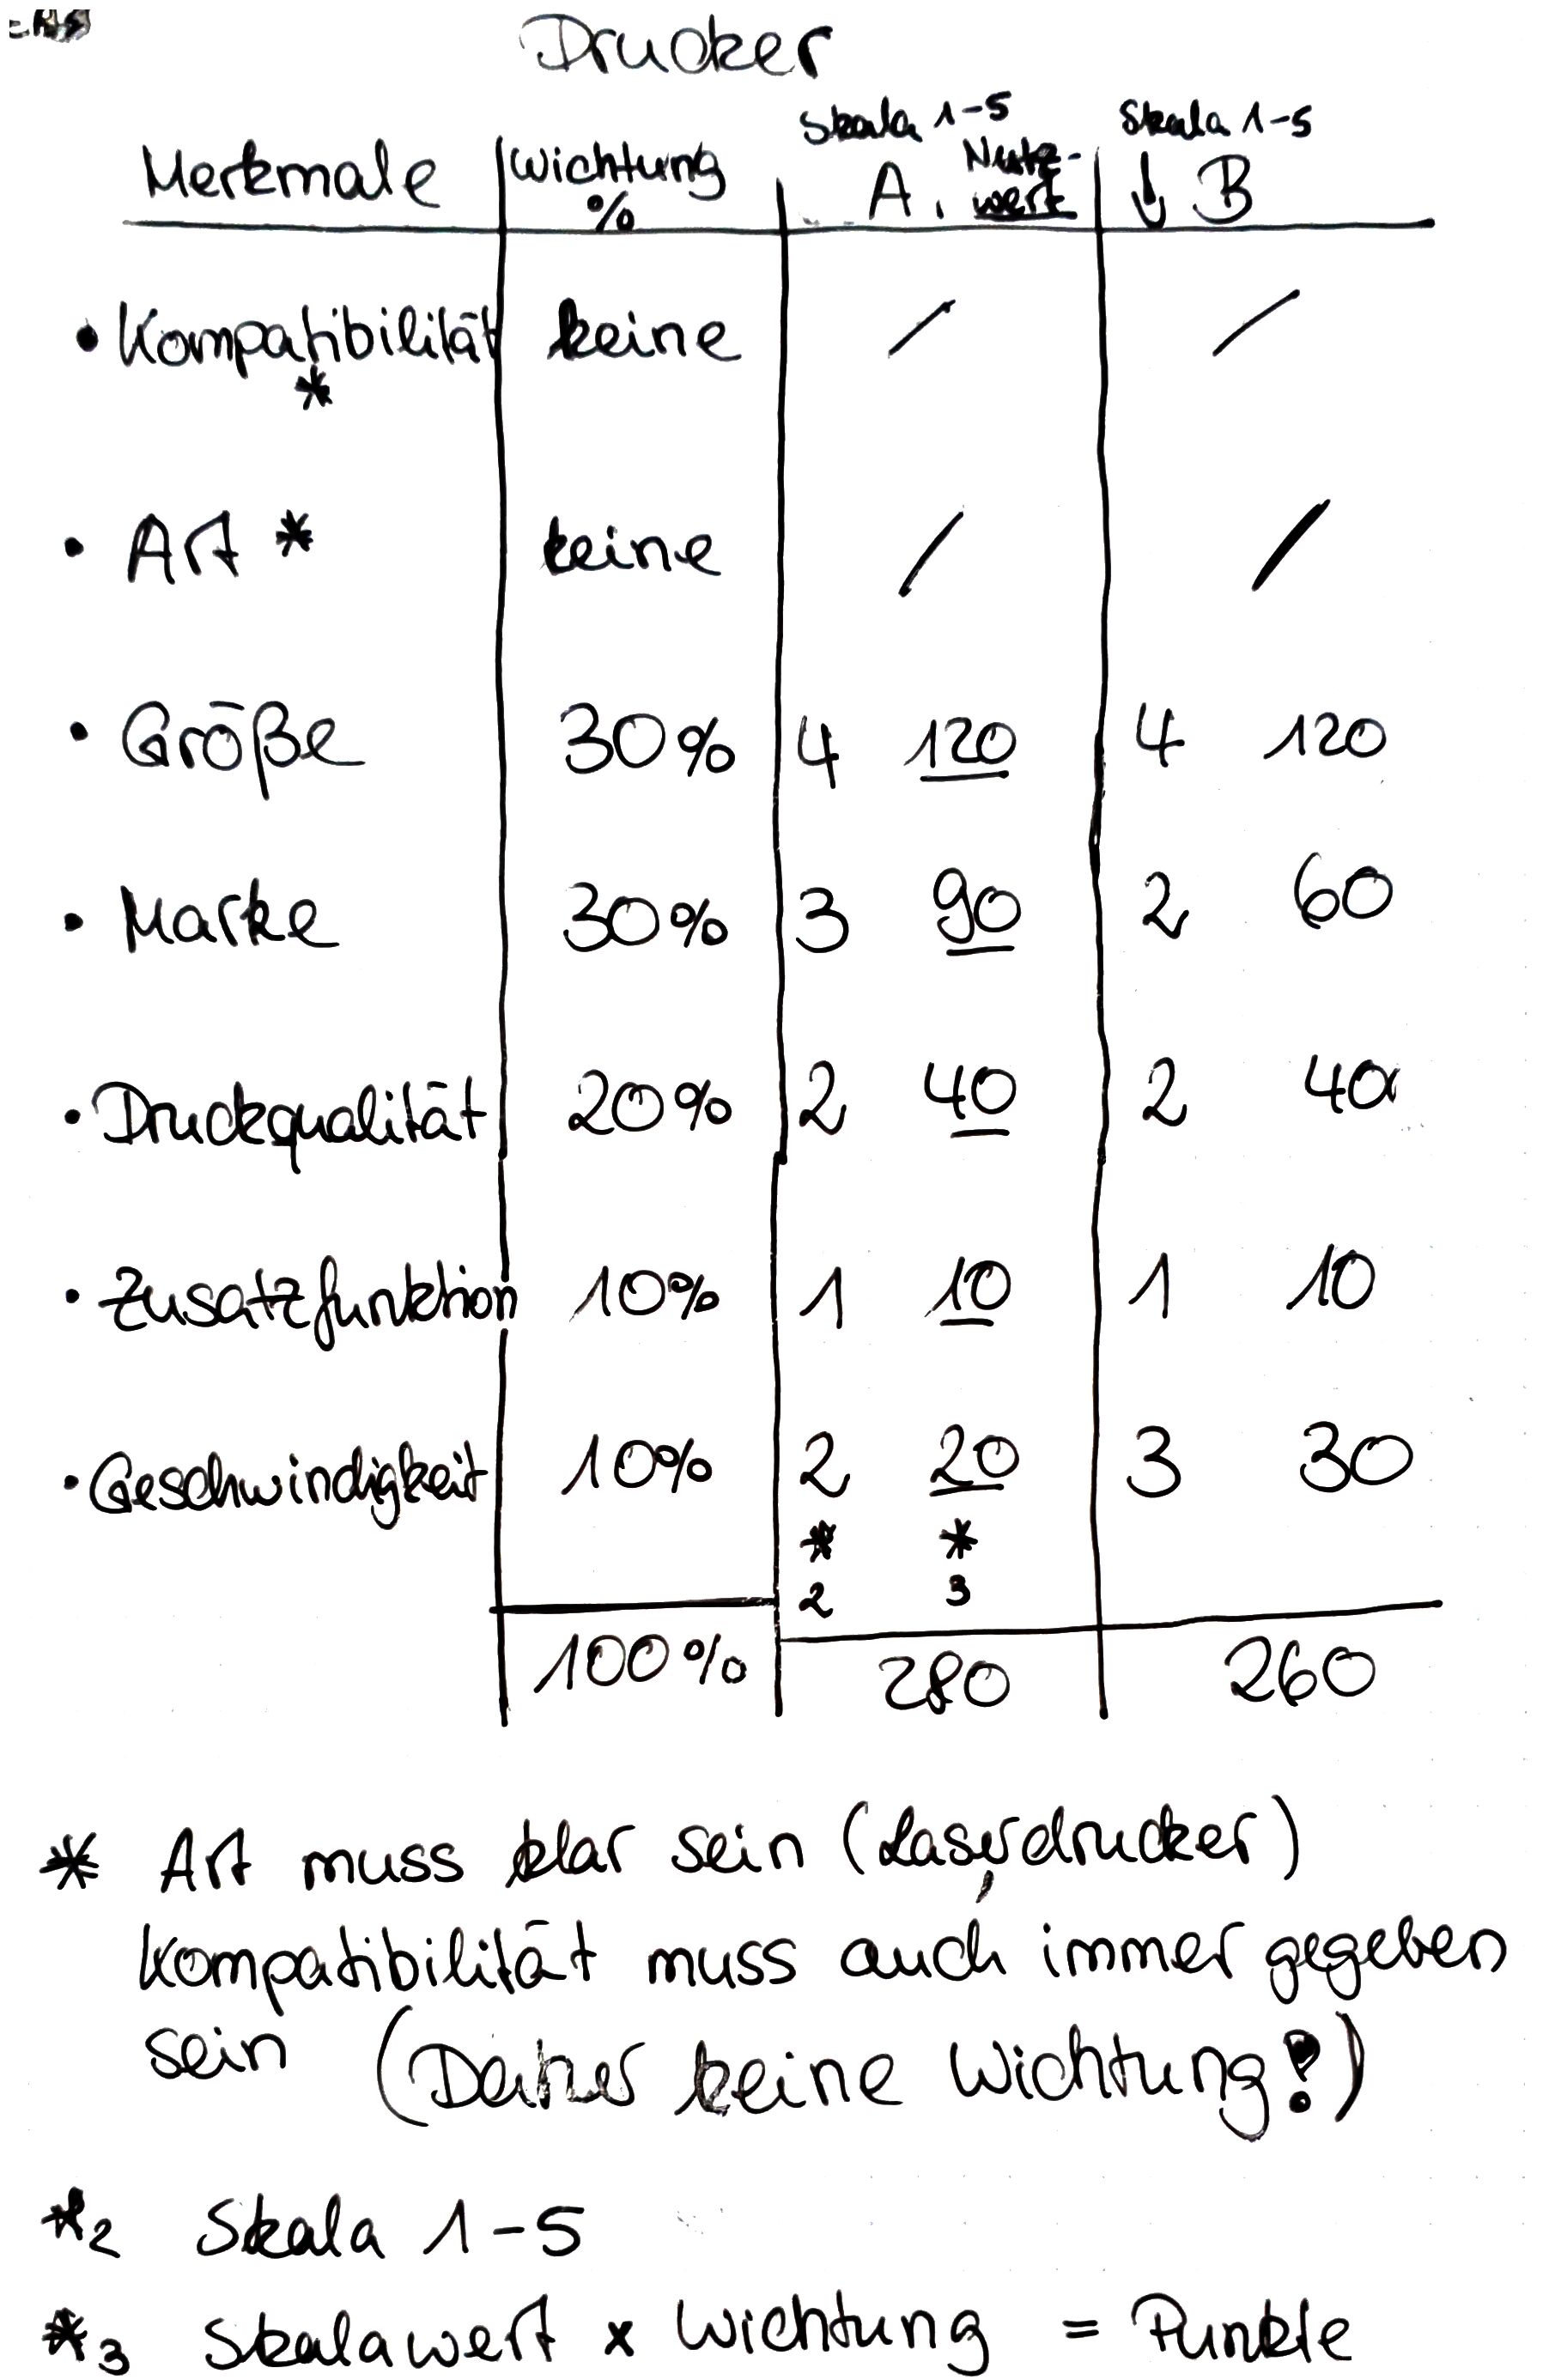 Drucker
Skala 1-5 Skala 1-5
Merkmale Wichtung % A Nutz-wert B
• Kompatibilität * keine / /
• Art * keine / /
• Größe 30% 4 120 4 120
• Marke 30% 3 90 2 60
• Druckqualität 20% 2 40 2 40
• Zusatzfunktion 10% 1 10 1 10
• Geschwindigkeit 10% 2 20 3 30
* *
2 3
100% 280 260
* Art muss klar sein (Laserdrucker)
Kompatibilität muss auch immer gegeben
sein (Daher keine Wichtung!)
*2 Skala 1-5
*3 Skalawert x Wichtung = Punkte